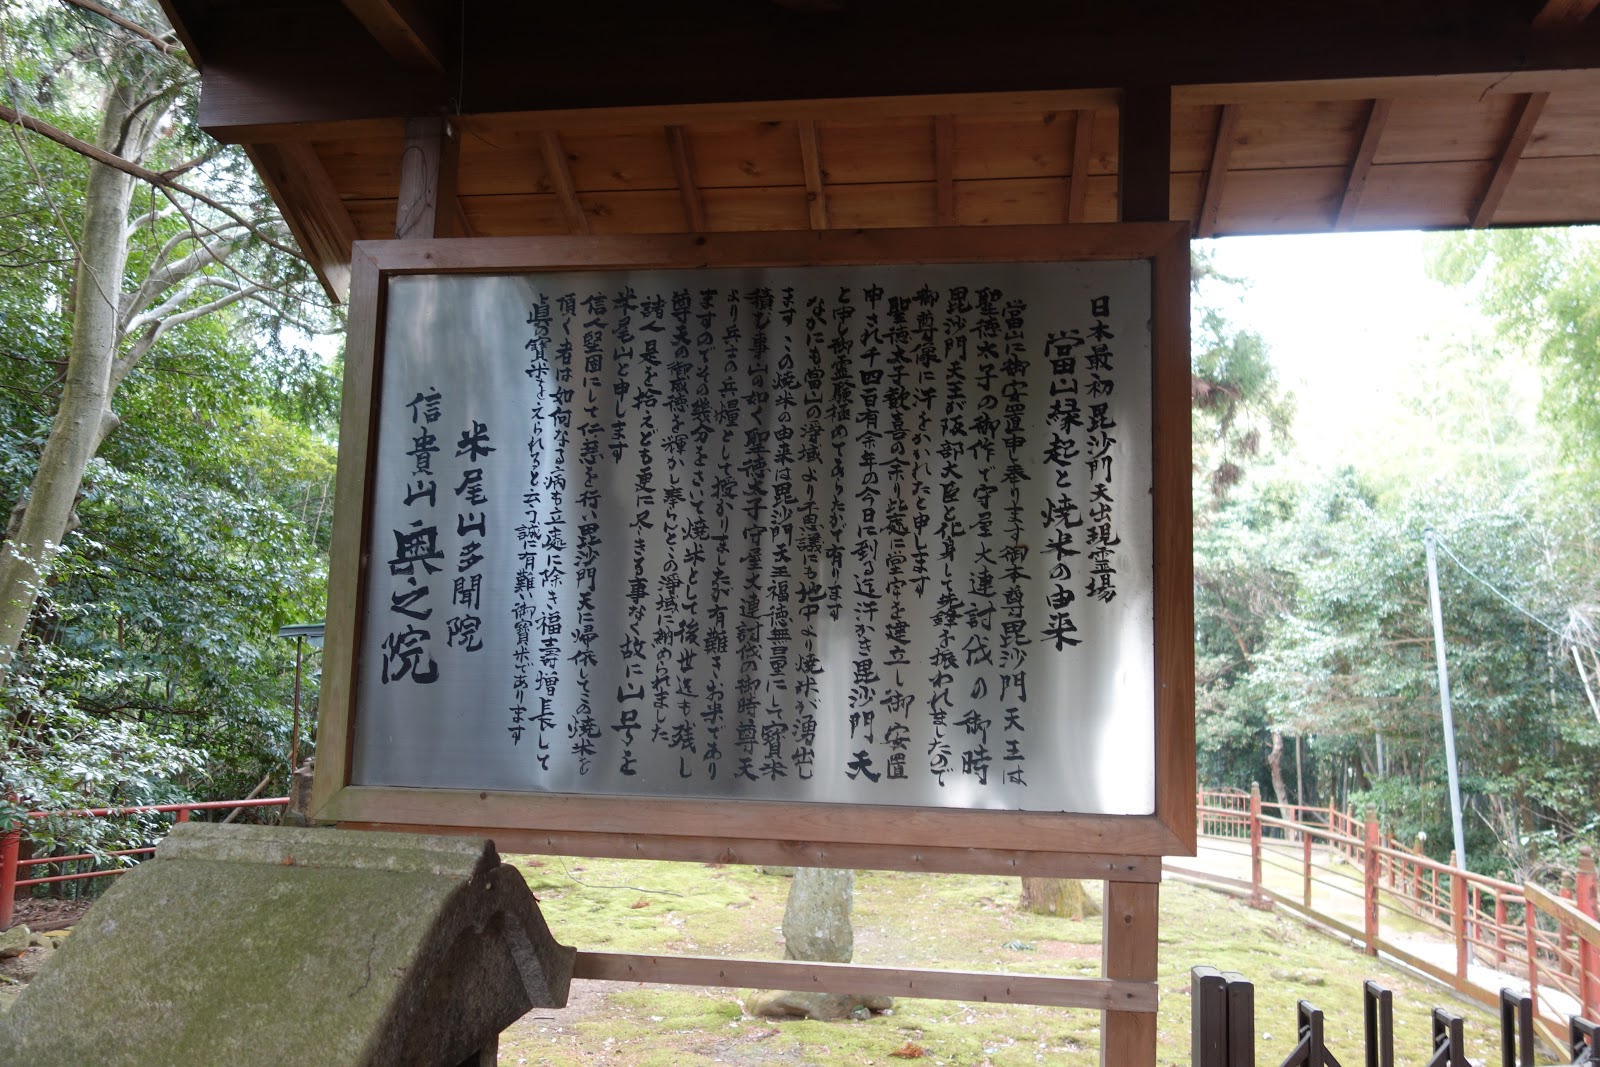 日本最初毘沙門天出現霊場
當山縁起と焼米の由来
當山に御安置申し奉ります御本尊毘沙門天王は
聖徳太子の御作で守屋大連討伐の御時
毘沙門天王が阪部大臣と化身して先鋒を振われましたので
御尊像に汗をかかれたと申します
聖徳太子歓喜の余り此處に堂宇を建立し御安置
申され千四百有余年の今日に到る迄汗かき毘沙門天
と申し御霊験極めてあらたかで有ります
なかにも當山の浄域より不思議にも地中より焼米が湧出し
ます この焼米の由来は毘沙門天王福徳無量にして寶米
積む事山の如く聖徳太子守屋大連討伐の御時尊天
より兵士の兵糧として授かりましたが有難きお米であり
ますのでその幾分をさいて焼米として後世迄も残し
尊天の御取徳を輝かし奉んとこの浄域に納められました
諸人是を拾えども更に尽きる事なく故に山号を
米尾山と申します
信人堅固にして仁慈を行い毘沙門天に帰依してこの焼米を
頂く者は如何なる病も立處に除き福壽増長して
眞の寶米をえられると云う誠に有難い御寶米であります
米尾山多聞院
信貴山奥之院